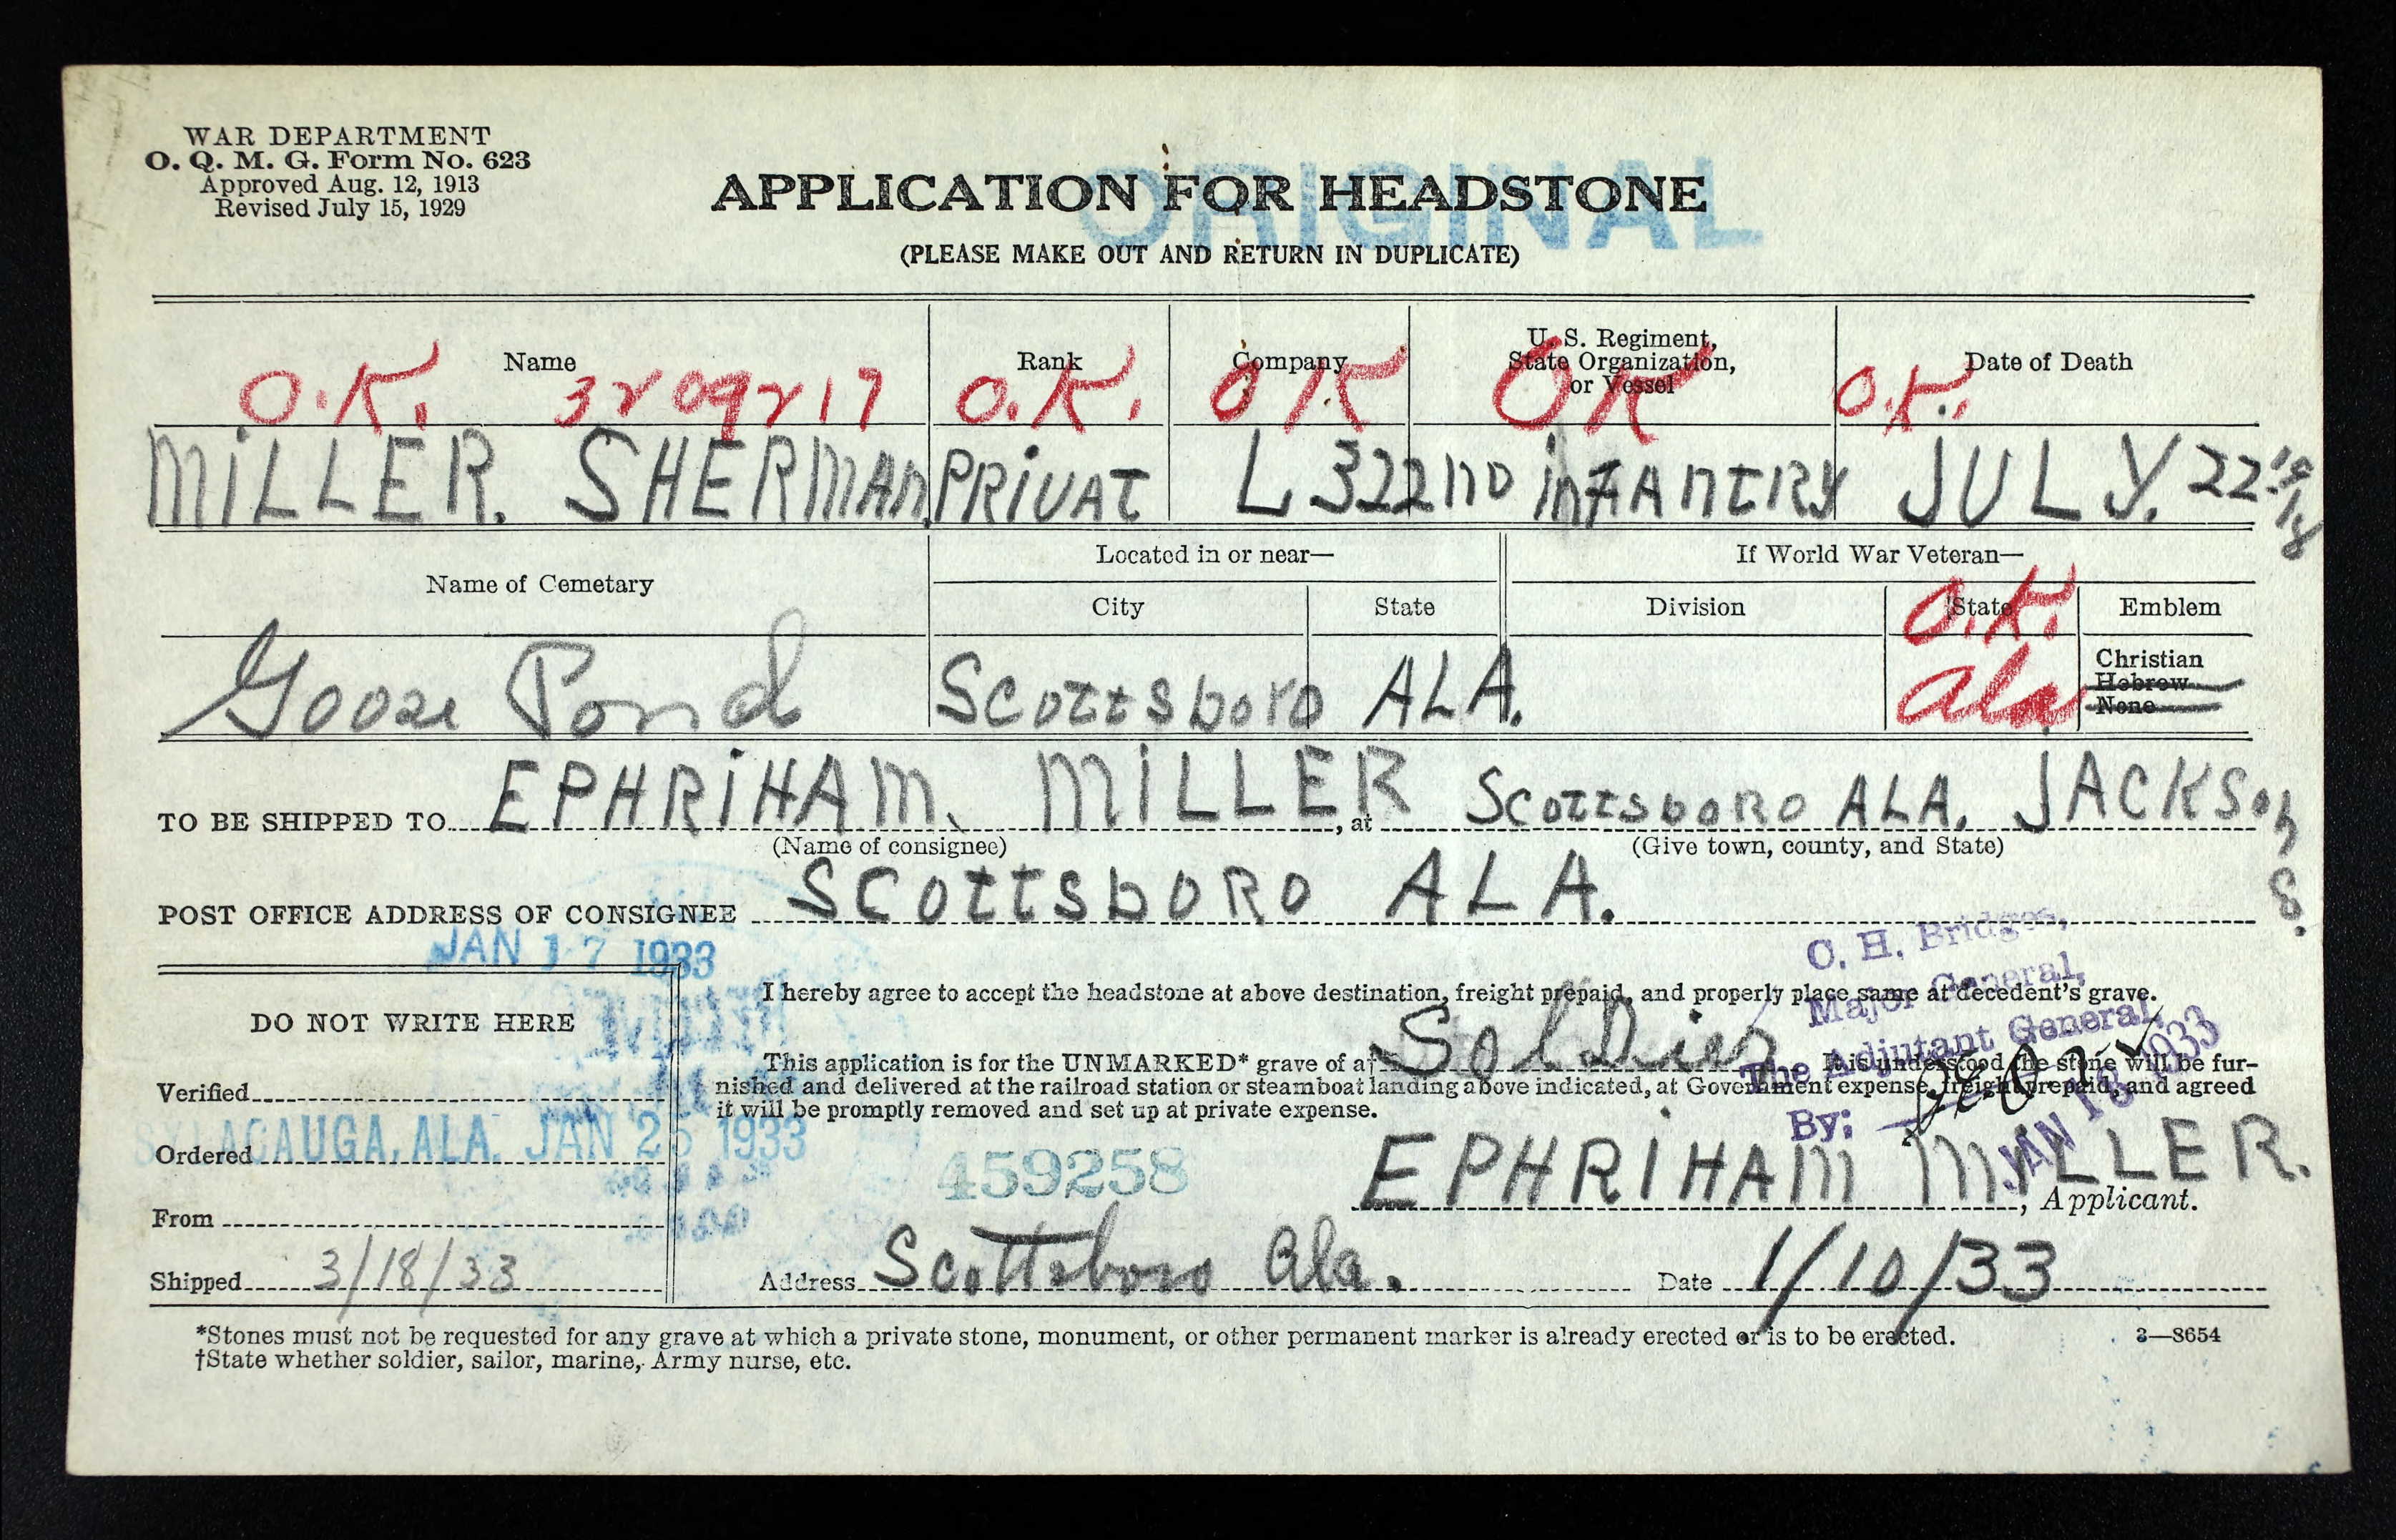 WAR DEPARTMENT
O. Q. M. G. Form No. 623
Approved Aug. 12, 1913
Revised July 15, 1929
ORIGINAL
APPLICATION FOR HEADSTONE
(PLEASE MAKE OUT AND RETURN IN DUPLICATE)
Name Rank Company U. S. Regiment, State Organization, or Vessel Date of Death
O.K. 3209217 O.K. OK OK O.K.
MiLLER. SHERMAN. PRiVAT L 322ND iNFANTRY JULY. 22. 1918
Name of Cemetary Located in or near— If World War Veteran—
City State Division State Emblem
O.K.
Goose Pond Scottsboro ALA. Ala Christian
Hebrew
None
TO BE SHIPPED TO EPHRiHAM. MiLLER, at Scottsboro ALA. JACKSon
(Name of consignee) (Give town, county, and State)
POST OFFICE ADDRESS OF CONSIGNEE SCOTTSBORO ALA.
JAN 17 1933
C. H. Bridges,
Major General,
The Adjutant General.
By:
JAN 18 1933
I hereby agree to accept the headstone at above destination, freight prepaid, and properly place same at decedent's grave.
DO NOT WRITE HERE
This application is for the UNMARKED* grave of a† SolDier It is understood the stone will be fur-
nished and delivered at the railroad station or steamboat landing above indicated, at Government expense, freight prepaid, and agreed
it will be promptly removed and set up at private expense.
Verified
SYLACAUGA, ALA. JAN 25 1933
Ordered
459258
EPHRiHAM MiLLER.
, Applicant.
From
Shipped 3/18/33
Address Scottsboro Ala. Date 1/10/33
*Stones must not be requested for any grave at which a private stone, monument, or other permanent marker is already erected or is to be erected.
3—8654
†State whether soldier, sailor, marine, Army nurse, etc.